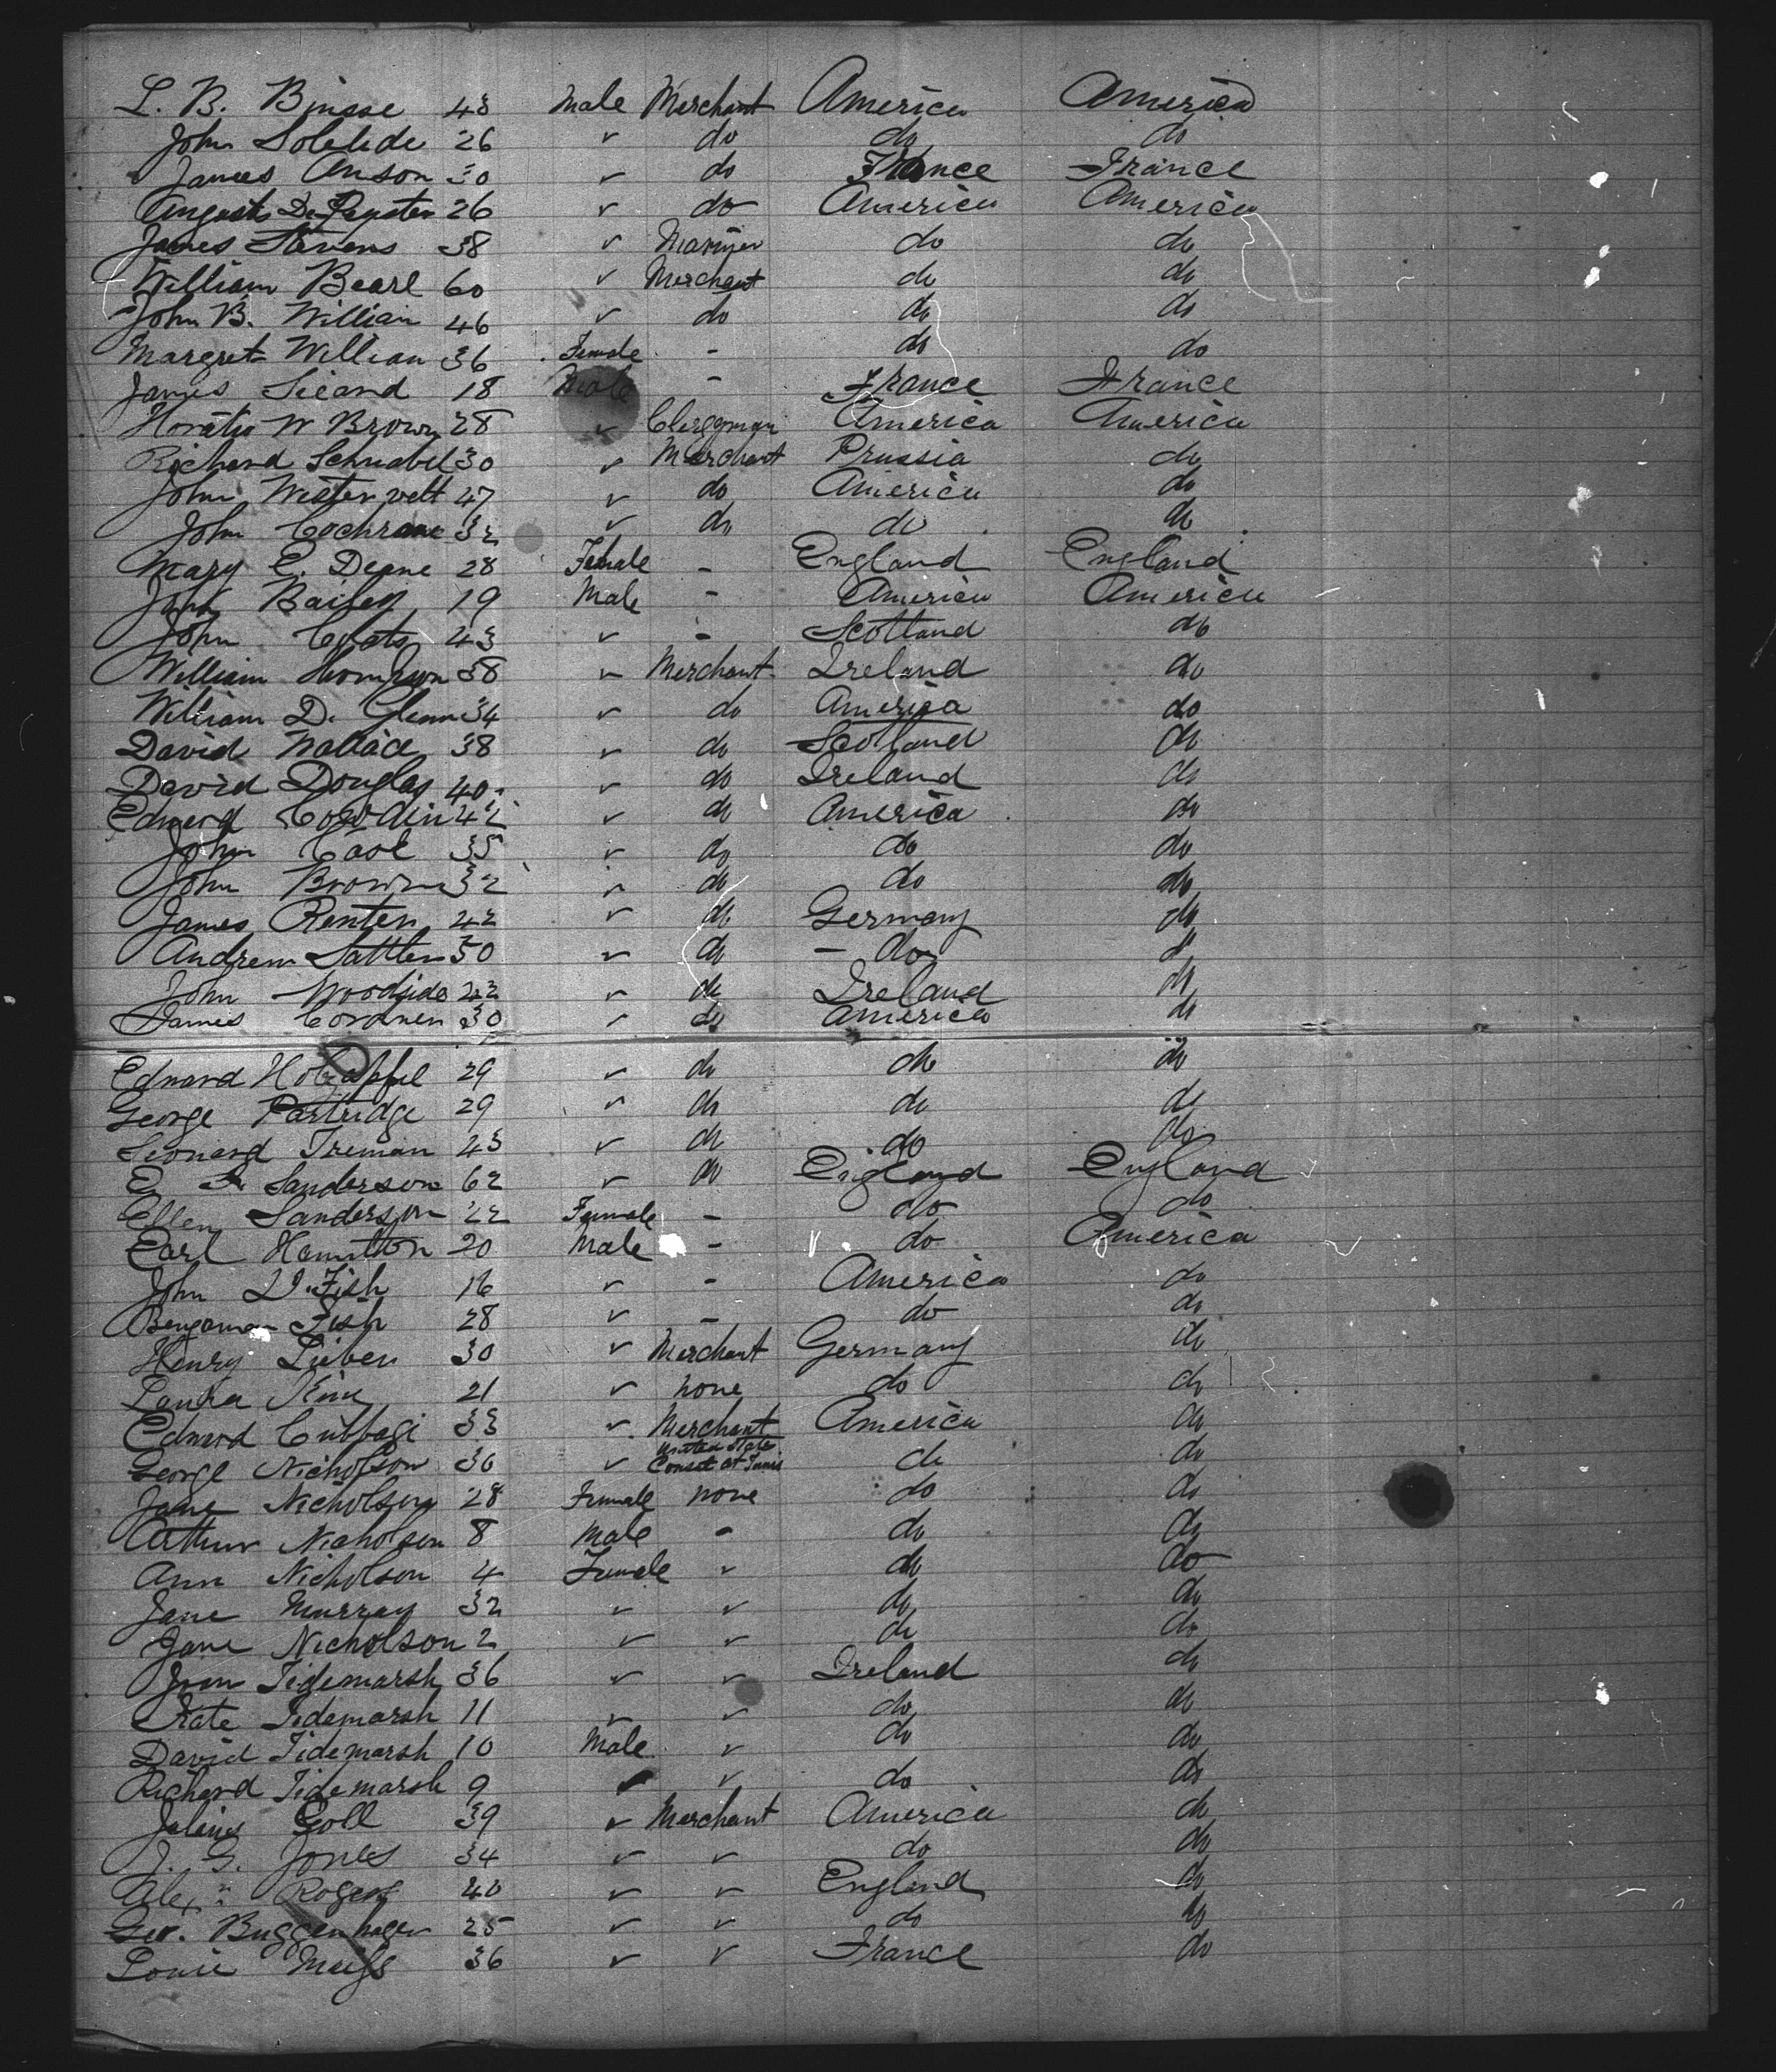 L. B. Binsse 43 Male Merchant America America
John Solelide 26 " do do do
James Anson 30 " do France France
August De Peyster 26 " do America America
James Stevens 38 " Mariner do do
William Bearl 60 " Merchant do do
John B. Willian 46 " do do do
Margret Willian 36 Female - do do
James Sicard 18 Male - France France
Horatio W Brown 28 " Clergyman America America
Richard Schnabel 30 " Merchant Prussia do
John Westervelt 47 " do America do
John Cochrane 32 " do do do
Mary E. Deane 28 Female - England England
John Bailey 19 Male - America America
John Coats 43 " - Scotland do
William Thompson 38 " Merchant Ireland do
William D. Glenn 34 " do America do
David Wallace 38 " do Scotland do
David Douglas 40 " do Ireland do
Edward Cowdin 42 " do America do
John Cook 35 " do do do
John Brown 32 " do do do
James Renter 42 " do Germany do
Andrew Sattler 50 " do - do do
John Woodside 42 " do Ireland do
James Cordner 30 " do America do
Edward Holzapfel 29 " do do do
George Partridge 29 " do do do
Leonard Treman 23 " do do do
E. Sanderson 62 " do England England
Ellen Sanderson 22 Female - do do
Earl Hamilton 20 Male - do America
John D. Fish 16 " - America do
Bengaman Fish 28 " - do do
Henry Lieber 30 " Merchant Germany do
Laura 21 " none do do
Edward Cubbagi 33 " Merchant America do
United State
George Nicholson 36 " Consel at Tunis do do
Jane Nicholson 28 Female none do do
Arthur Nicholson 8 Male - do do
Ann Nicholson 4 Female " do do
Jane Murray 32 " " do do
Jane Nicholson 2 " " do do
Tidemarsh 36 " " Ireland do
Kate Tidemarsh 11 " " do do
David Tidemarsh 10 Male " do do
Richard Tidemarsh 9 " " do do
Julius Goll 39 " Merchant America do
J. G. Jones 34 " " do do
Alex Rogers 40 " " England do
Geo. Buggenhagen 25 " " do do
Louie Meigs 36 " " France do